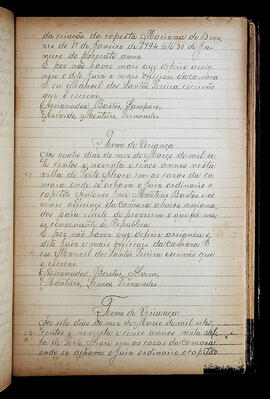 da criação da exposta Marianna de Bme-
rio do 1º de Janeiro de 1794 até 30 de Ja-
neiro do presente anno.
E por não haver mais que deferir assig-
nou o dito Juiz e mais officiaes da camara
E eu Manoel dos Santos Pereira escrivão
que o escrevi.
Assignados Bastos, Sampaio,
Azevedo, Monteiro, Fernandes
Termo de Vriança
Aos quatro dias do mez de Março de mil se-
te centos e noventa e cinco annos nesta
villa de Porto Alegre em as cazas da ca-
mara onde se achava o Juiz ordinario o
capitão Antonio José Martins Bastos e os
mais officiaes da camara abaixo assigna-
dos para effeito de proverem o que fos ma-
is conveniente a Republica
E por não haver que deferir assignou o
dito Juiz e mais officiaes da camara E
eu Manoel dos Santos Pereira escrivão que
o escrevi.
Assignados Bastos,
Monteiro, Lemos Fernandes
Termo de Vriança
Aos sete dias do mez de Março de mil sete
centos e noventa e cinco annos nesta vil-
la de Porto Alegre em as cazas da camara
onde se achava o Juiz ordinario o capitão